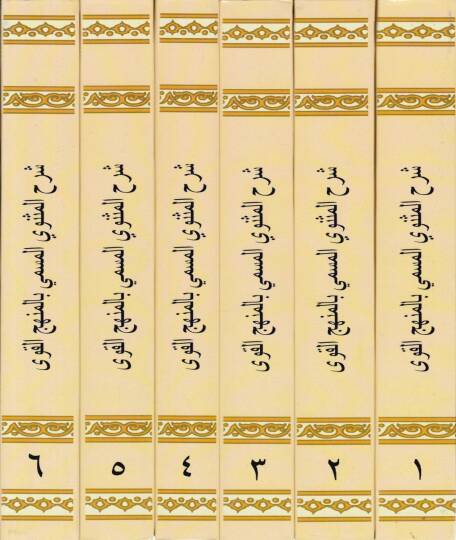 شرح المثنوي المسمي بالمنهج القوى
١
شرح المثنوي المسمي بالمنهج القوى
٢
شرح المثنوي المسمي بالمنهج القوى
٣
شرح المثنوي المسمي بالمنهج القوى
٤
شرح المثنوي المسمي بالمنهج القوى
٥
شرح المثنوي المسمي بالمنهج القوى
٦